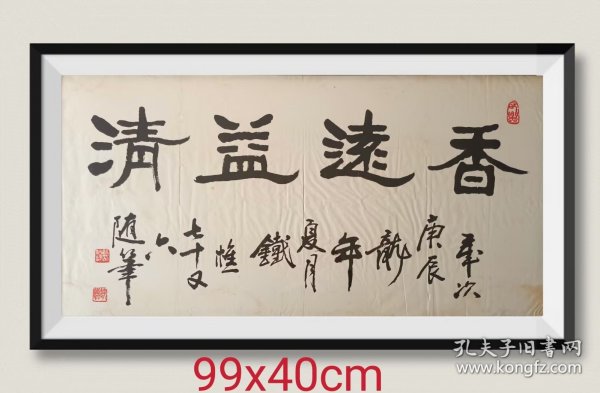 香遠益清
歲次
庚辰
龍
年
夏月
鐵
樵
七十又
六
随筆
99x40cm
孔夫子旧书网
www.kongfz.com